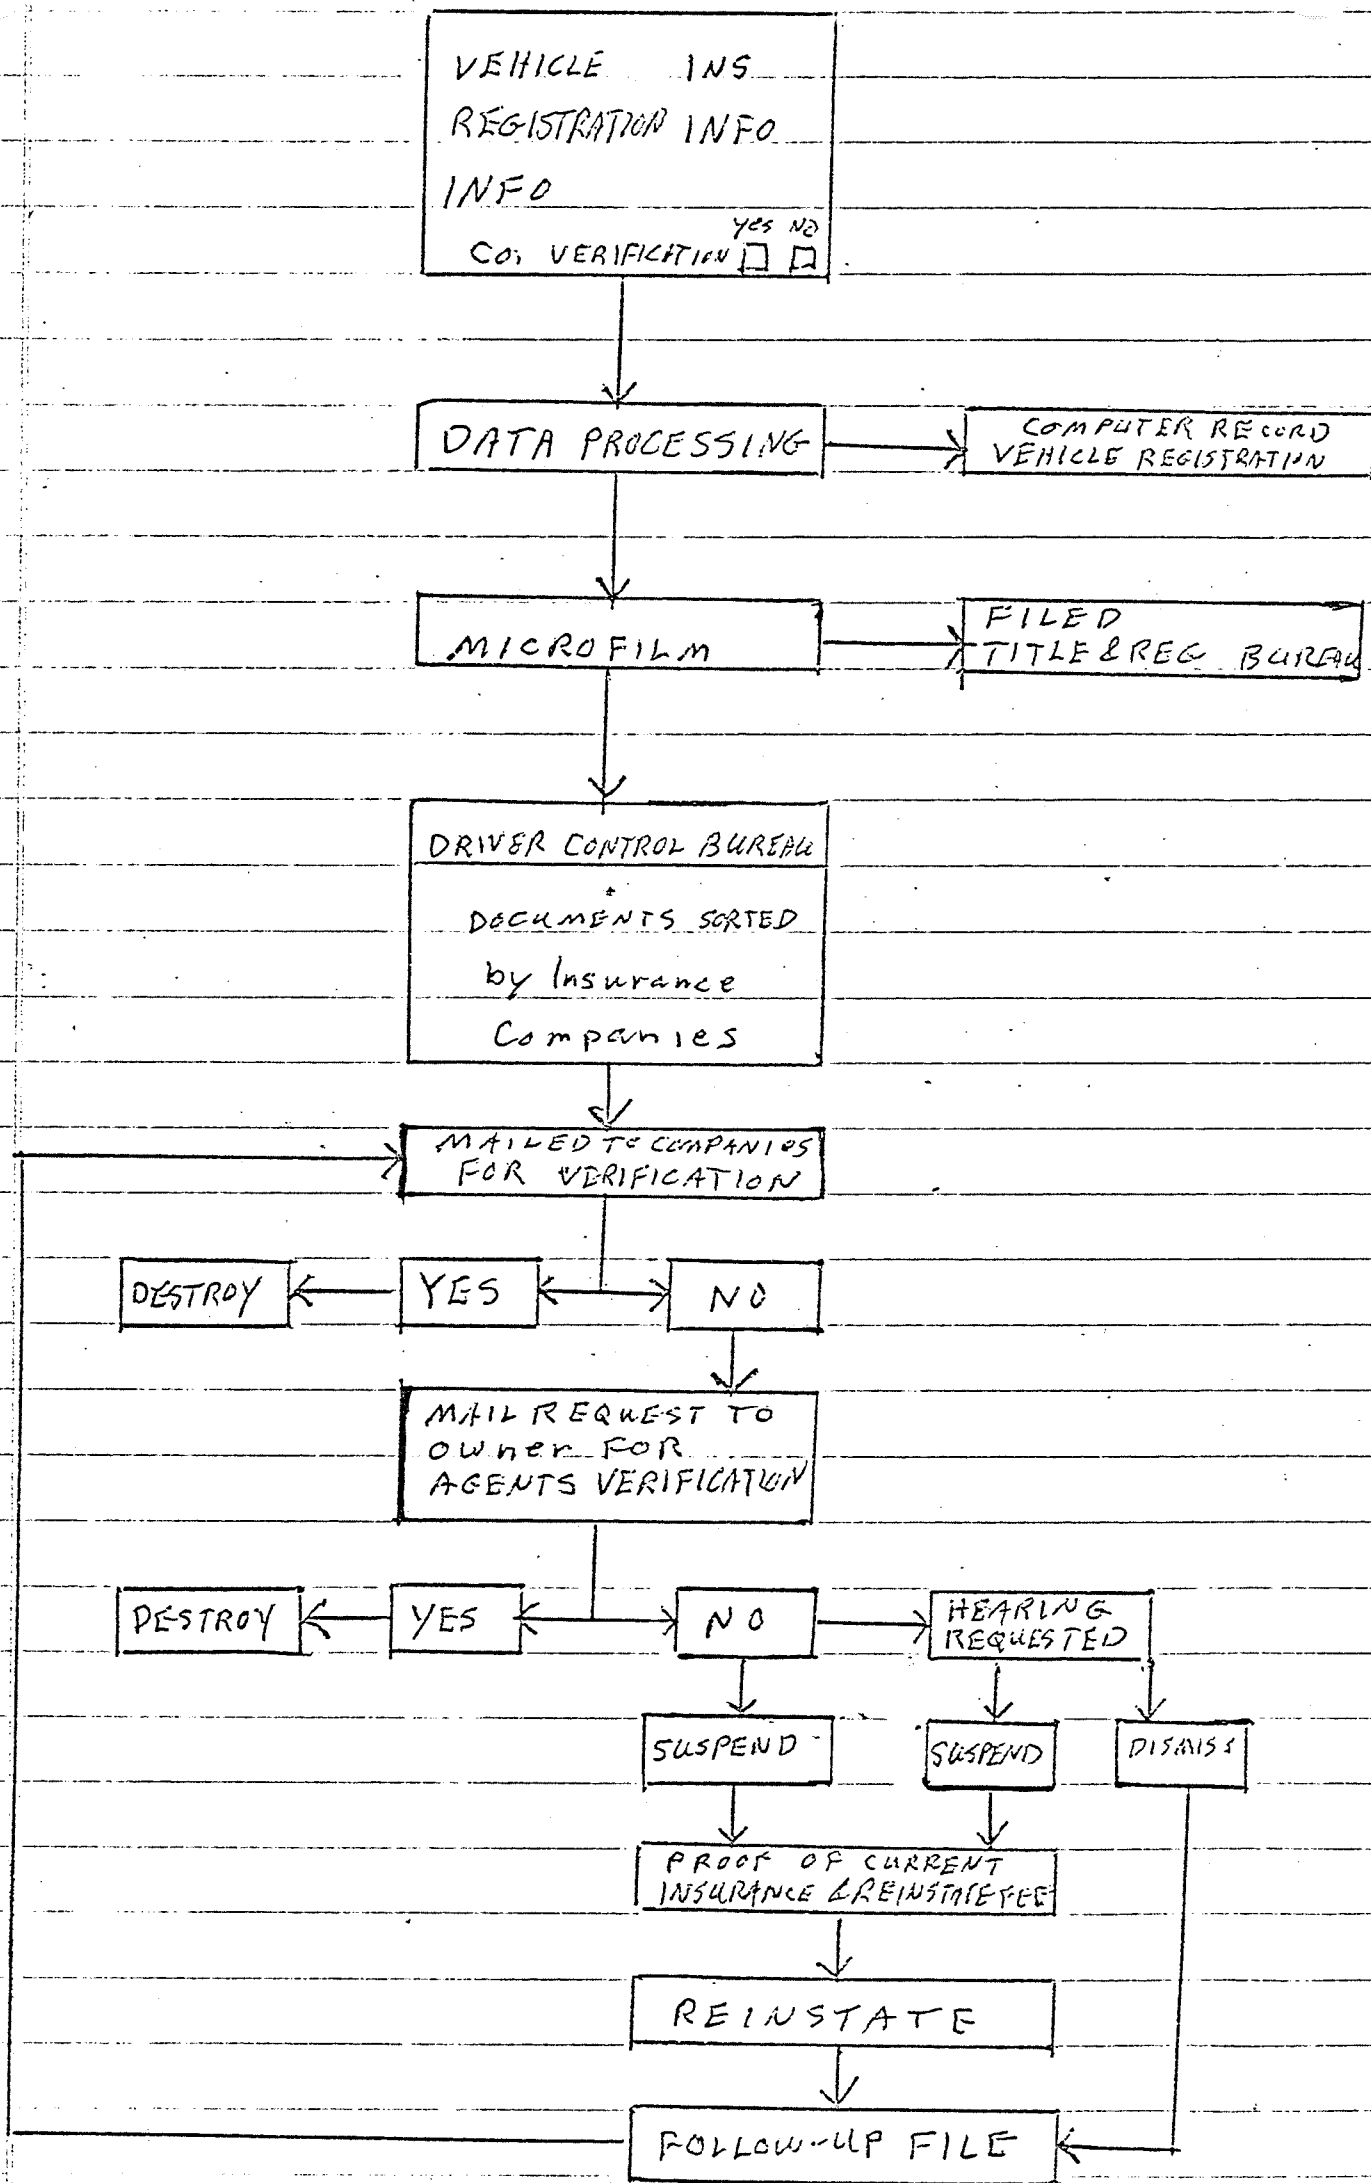 VEHICLE INS
REGISTRATION INFO
INFO
yes NO
CO. VERIFICATION
DATA PROCESSING
COMPUTER RECORD
VEHICLE REGISTRATION
MICROFILM
FILED
TITLE & REG BUREAU
DRIVER CONTROL BUREAU
DOCUMENTS SORTED
by Insurance
Companies
MAILED TO COMPANIES
FOR VERIFICATION
DESTROY
YES
NO
MAIL REQUEST TO
owner FOR
AGENTS VERIFICATION
DESTROY
YES
NO
HEARING
REQUESTED
SUSPEND
SUSPEND
DISMISS
PROOF OF CURRENT
INSURANCE & REINSTATE FEE
REINSTATE
FOLLOW-UP FILE